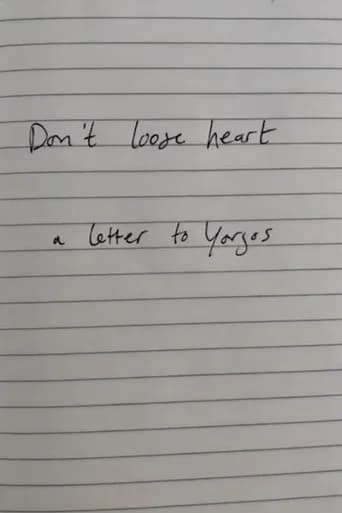 Don't loose heart
a letter to Yorgos